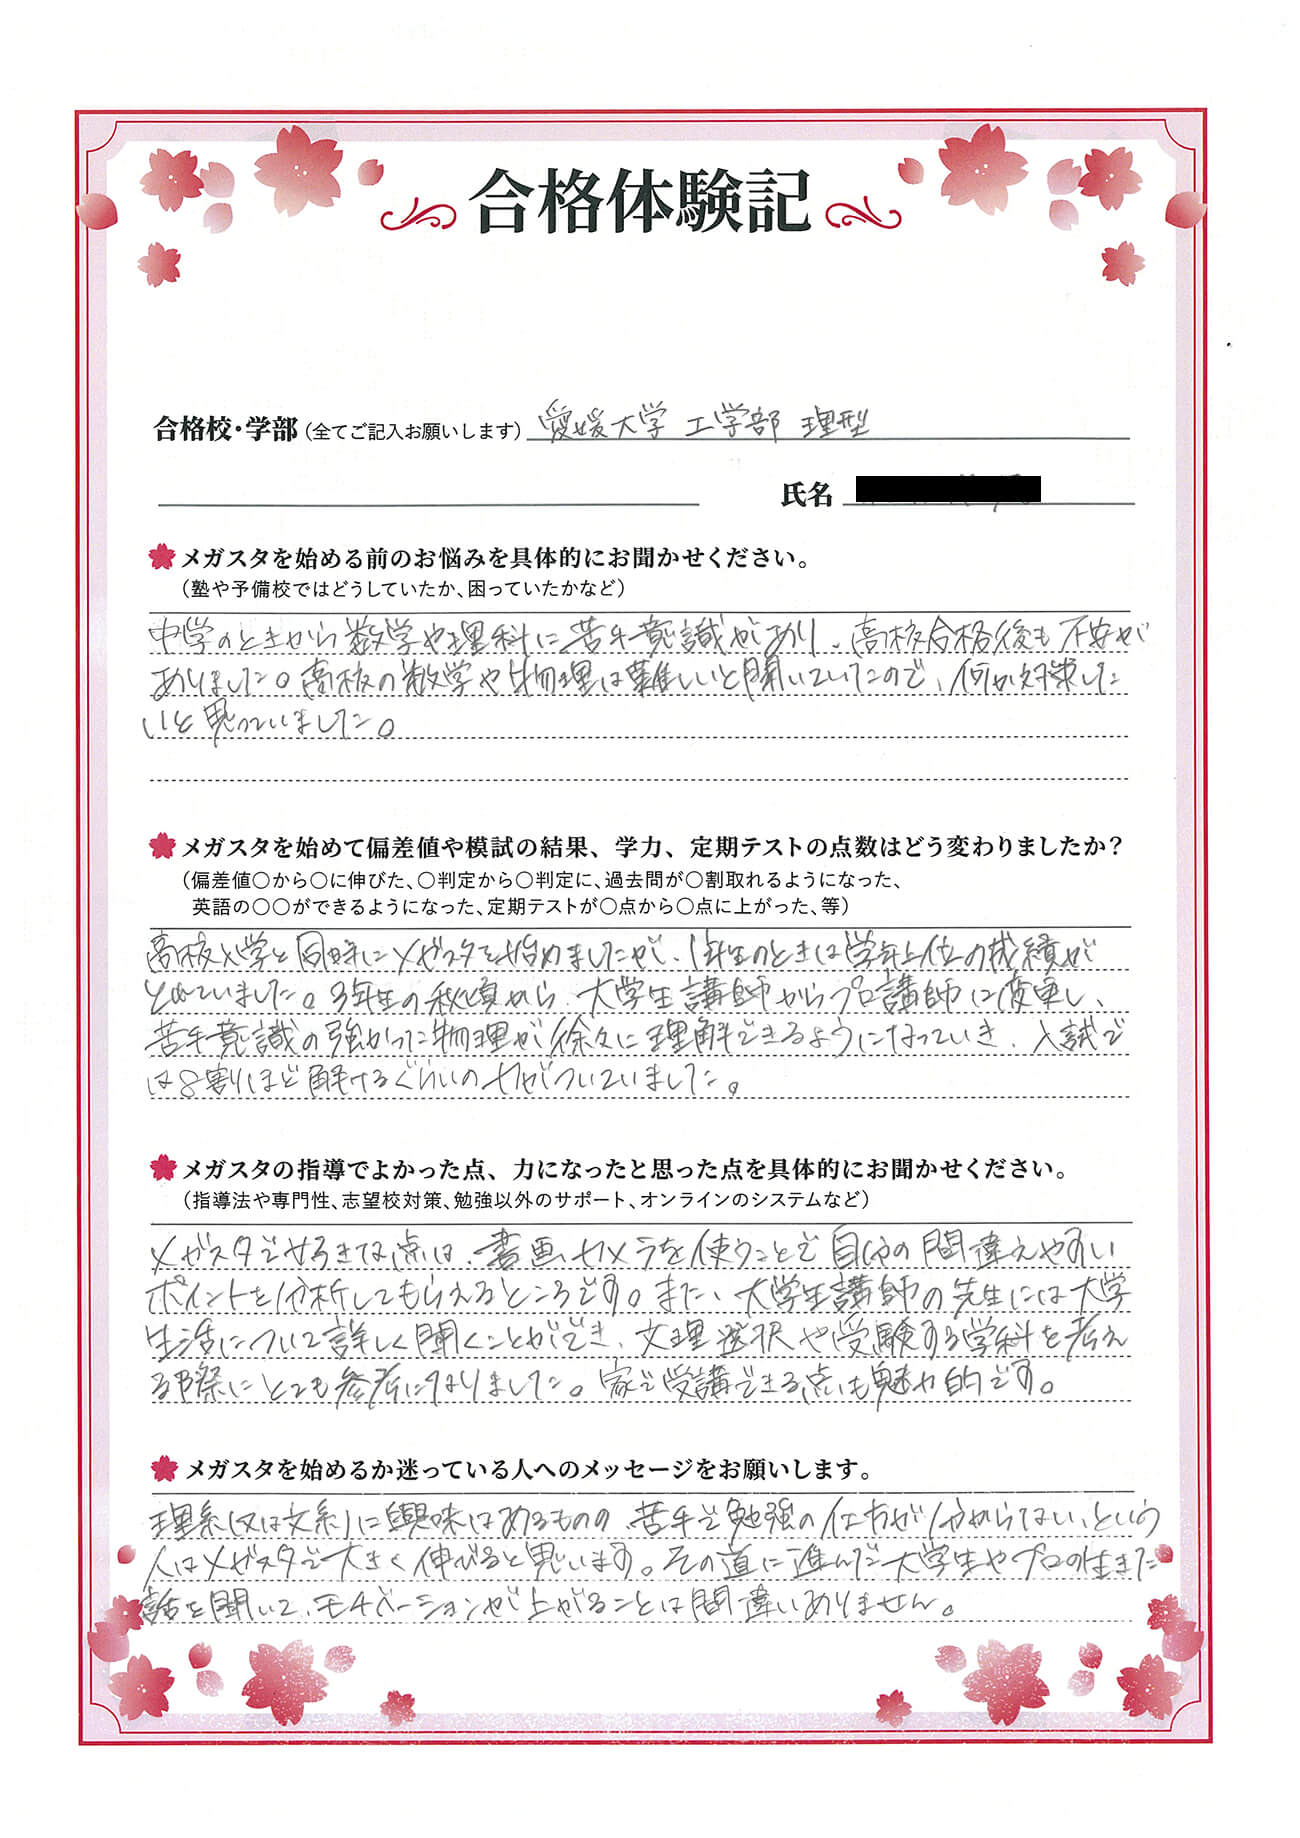 合格体験記
合格校・学部(全てご記入お願いします) 愛媛大学 工学部 理型
氏名
メガスタを始める前のお悩みを具体的にお聞かせください。
(塾や予備校ではどうしていたか、困っていたかなど)
中学のときから数学や理科に苦手意識があり、高校合格後も不安が
ありました。高校の数学や物理は難しいと聞いていたので、何か対策した
いと思っていました。
メガスタを始めて偏差値や模試の結果、学力、定期テストの点数はどう変わりましたか?
(偏差値〇から〇に伸びた、〇判定から〇判定に、過去問が〇割取れるようになった、
英語の〇〇ができるようになった、定期テストが〇点から〇点に上がった、等)
高校入学と同時にメガスタを始めましたが、1年生のときは学年上位の成績が
とれていました。3年生の秋頃から、大学生講師からプロ講師に変更し、
苦手意識の強かった物理が徐々に理解できるようになっていき、入試で
は8割ほど解けるぐらいの力がついていました。
メガスタの指導でよかった点、力になったと思った点を具体的にお聞かせください。
(指導法や専門性、志望校対策、勉強以外のサポート、オンラインのシステムなど)
メガスタで好きな点は、書画カメラを使うことで自分の間違えやすい
ポイントを分析してもらえるところです。また、大学生講師の先生には大学
生活について詳しく聞くことができ、文理選択や受験する学科を考え
る際にとても参考になりました。家で受講できる点も魅力的です。
メガスタを始めるか迷っている人へのメッセージをお願いします。
理系(又は文系)に興味はあるものの、苦手で勉強の仕方が分からない、という
人はメガスタで大きく伸びると思います。その道に進んだ大学生やプロの生きた
話を聞いて、モチベーションが上がることは間違いありません。